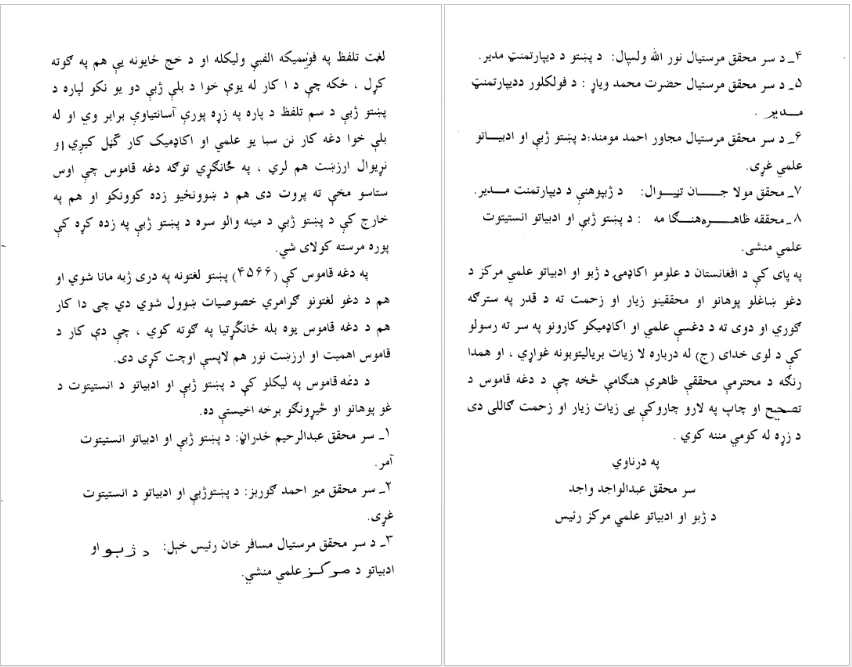 لغت تلفظ په فونیمیکه الفبې ولیکله او د خج ځایونه یې هم په ګوته
کړل ، ځکه چې د ا کار له یوې خوا د بلې ژبې دو یو نکو لپاره د
پښتو ژبې د سم تلفظ د پاره په زړه پورې آسانتیاوې برابر وي او له
بلې خوا دغه کار نن سبا یو علمي او اکاډمیک کار ګڼل کیږي او
نړیوال ارزښت هم لري ، په ځانګړي توګه دغه قاموس چې اوس
ستاسو مخې ته پروت دی هم د ښوونځیو زده کوونکو او هم په
خارج کې د پښتو ژبې د مینه والو سره د پښتو ژبې په زده کړه کې
پوره مرسته کولای شي.
په دغه قاموس کې (۴۵۶۶) پښتو لغتونه په دری ژبه مانا شوي او
هم د دغو لغتونو ګرامري خصوصیات ښوول شوي دي چی دا کار
هم د دغه قاموس یوه بله ځانګړتیا په ګوته کوي ، چې دې کار د
قاموس اهمیت او ارزښت نور هم لاپسې اوچت کړی دی.
د دغه قاموس په لیکلو کې د پښتو ژبې او ادبیاتو د انستیتوت د
غو پوهانو او څیړونکو برخه اخیستې ده.
۱_ سر محقق عبدالرحیم ځدراڼ: د پښتو ژبې او ادبیاتو انستیتوت
آمر.
۲_ سر محقق میر احمد ګوربز: د پښتوژبې او ادبیاتو د انستیتوت
غړی.
۳_ د سر محقق مرستیال مسافر خان رئیس خېل: د ژبو او
ادبیاتو د مرکز علمي منشي.
۴_ د سر محقق مرستیال نور الله ولسپال: د پښتو د دیپارتمنټ مدیر.
۵_ د سر محقق مرستیال حضرت محمد ویاړ : د فولکلور ددیپارتمنټ
مـدیر .
۶_ د سر محقق مرستیال مجاور احمد مومند:د پښتو ژبې او ادبیـاتو
علمي غړی.
۷_ محقق مولا جــــان تڼیــوال: د ژبپوهنې د دیپارتمنت مــدیر.
۸_ محققه ظاهـــره هنـــګا مه : د پښتو ژبې او ادبیاتو انستیتوت
علمي منشی.
په پای کې د افغانستان د علومو اکاډمۍ د ژبو او ادبیاتو علمي مرکز د
دغو ښاغلو پوهانو او محققینو زیار او زحمت ته د قدر په سترګه
ګوري او دوی ته د دغسې علمي او اکاډمیکو کارونو په سر ته رسولو
کې د لوی خدای (ج) له درباره لا زیات بریالیتوبونه غواړي ، او همدا
رنګه د محترمې محققې ظاهرې هنګامې څخه چې د دغه قاموس د
تصحیح او چاپ په لارو چاروکې یی زیات زیار او زحمت ګاللی دی
د زړه له کومي مننه کوي .
په درناوي
سر محقق عبدالواجد واجد
د ژبو او ادبیاتو علمي مرکز رئیس